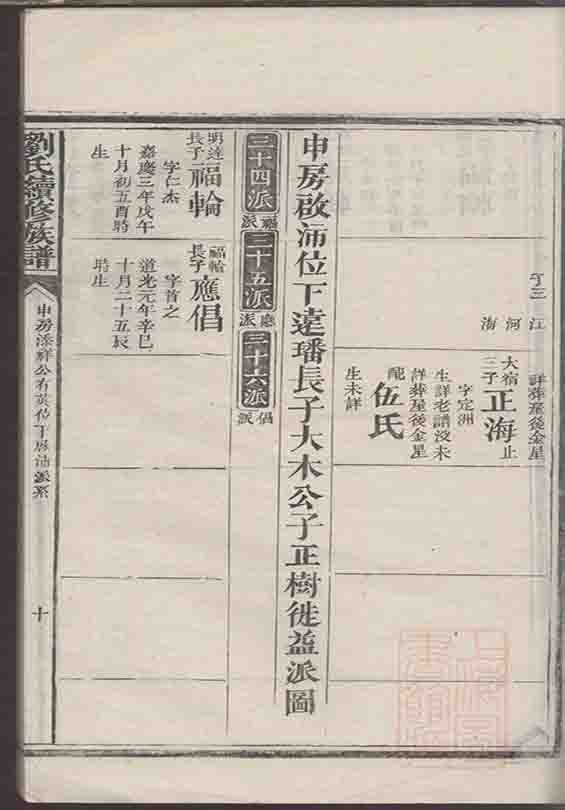 子三
江
河
海
詳葬屋後金星
大宿
三子
正海止
字定洲
生詳老譜没未
詳葬屋後金星
配
伍氏
生未詳
申房啟沛位下遠璠長子大木公子正樹徙益派圖
三十四派
福派
三十五派
應派
三十六派
倡派
明達
長子
福輪
字仁杰
嘉慶三年戊午
十月初五酉時
生
福輪
長子
應倡
字首之
道光元年辛巳
十月二十五辰
時生
劉氏續修族譜
申房添祥公有英位下啟沛派系
十